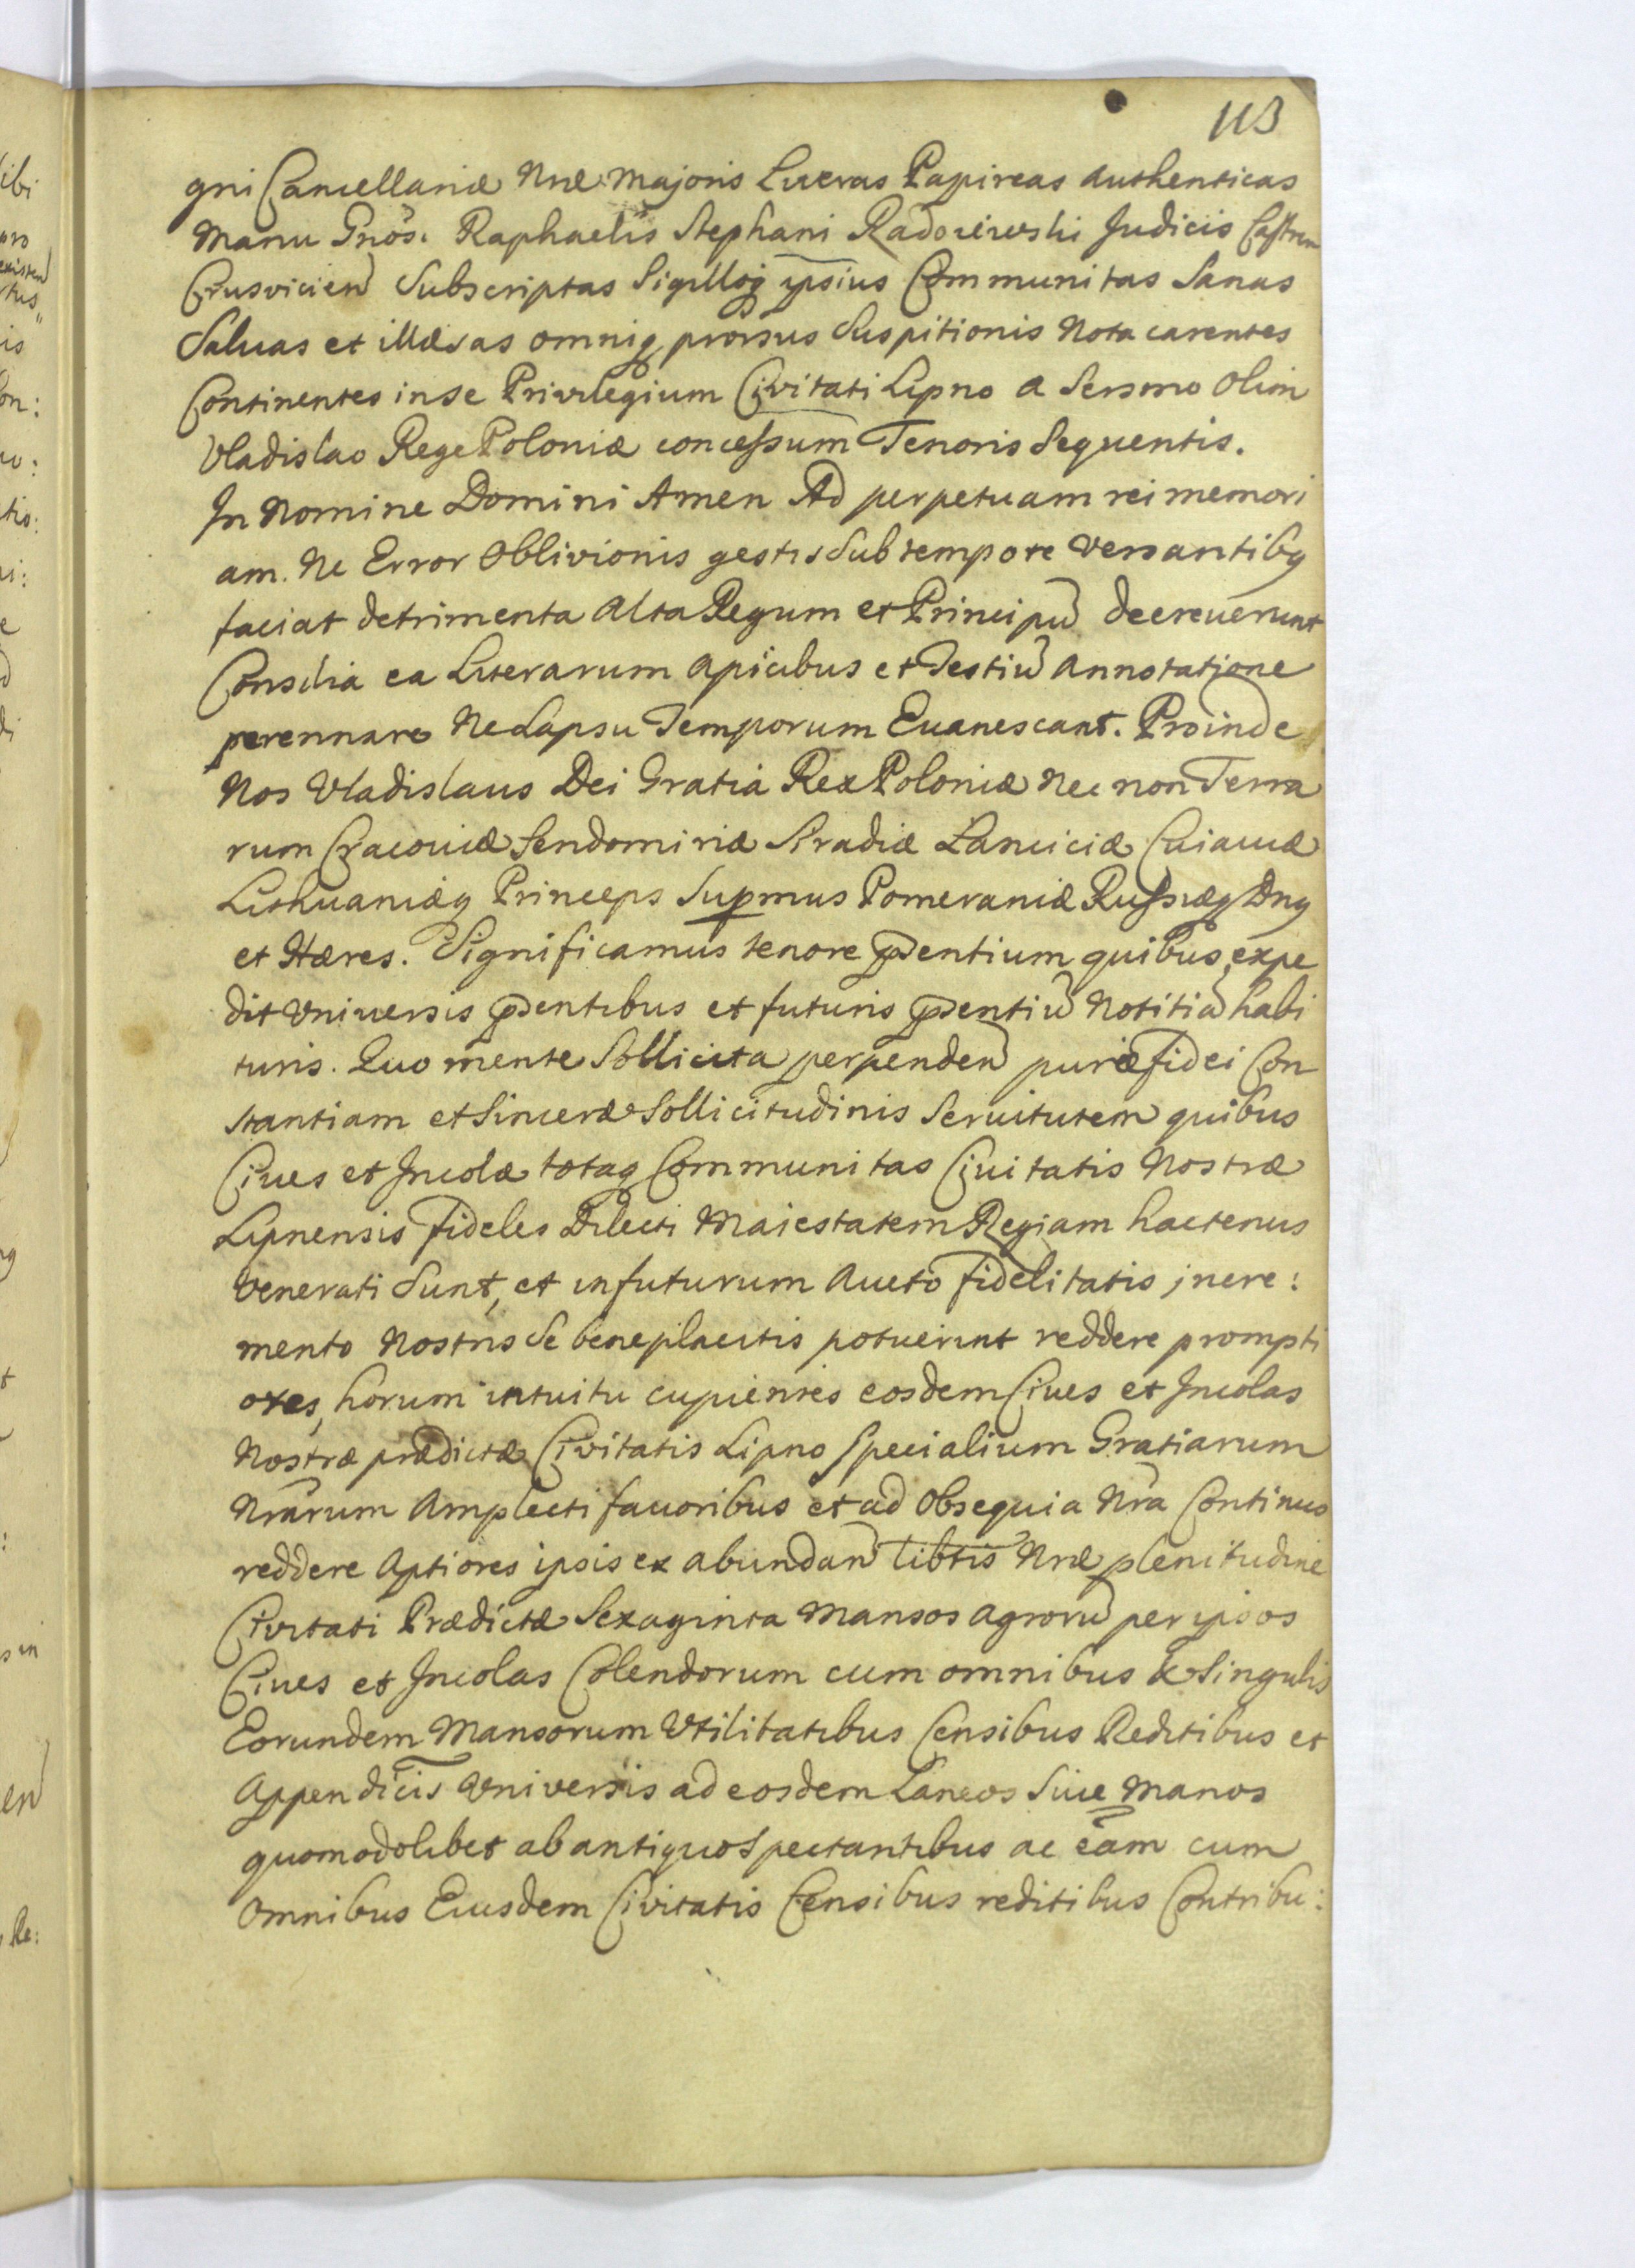 113
gni Cancellariæ Nræ Majoris Literas Papireas authenticas
Manu Gnōsi Raphaelis Stephani Radoiewski Judicis Castren
Crusvicien Subscriptas Sigilloq ipsius Communitas Sanas
Saluas et illæsas omniq prorsus Suspitionis Nota carentes
Continentes in se Privilegium Civitati Lipno a Sermo Olim
Vladislao Rege Poloniæ concessum Tenoris Sequentis.
In Nomine Domini Amen Ad perpetuam rei memori
am. Ne Error Oblivionis gestis Sub tempore versantibq
faciat detrimenta Alta Regum et Principū decreuerunt
Consilia ea Literarum apicibus et Testiū Annotatione
perennare Ne Lapsu Temporum Euanescant. Proinde
Nos Vladislaus Dei Gratia Rex Poloniæ Nec non Terra
rum Cracoviæ Sendomiriæ Siradiæ Lanciciæ Cuiauiæ
Lithuaniæq Princeps Supmus Pomeraniæ Russiæq Dnq
et Hæres. Significamus tenore pñsentium quibus expe
dit Vniuersis pñsentibus et futuris pñsentiū Notitiā habi
turis. Quo mente Sollicita perpenden puræ fidei Con
stantiam et Sinceræ Sollicitudinis Seruitutem quibus
Ciues et Incolæ totaq Communitas Ciuitatis Nostræ
Lipnensis fideles Dilecti Maiestatem Regiam hactenus
venerati Sunt, et in futurum Aucto fidelitatis incre:
mento Nostris Se beneplacitis potuerint reddere prompti
ores, horum intuitu cupientes eosdem Ciues et Incolas
Nostræ prædictæ Civitatis Lipno Specialium Gratiarum
Nrārum Amplecti fauoribus et ad Obsequia Nrā Continuo
reddere Aptiores ipsis ex abundan libtis Nræ plenitudine
Civitati Prædictæ Sexaginta Mansos agrorū per ipsos
Ciues et Incolas Colendorum cum omnibus & Singulis
Eorundem Mansorum Vtilitatibus Censibus Reditibus et
Appendicis Vniversis ad eosdem Laneos Siue Manos
quomodolibet ab antiquo Spectantibus ac eām cum
Omnibus Eiusdem Civitatis Censibus reditibus Contribu: